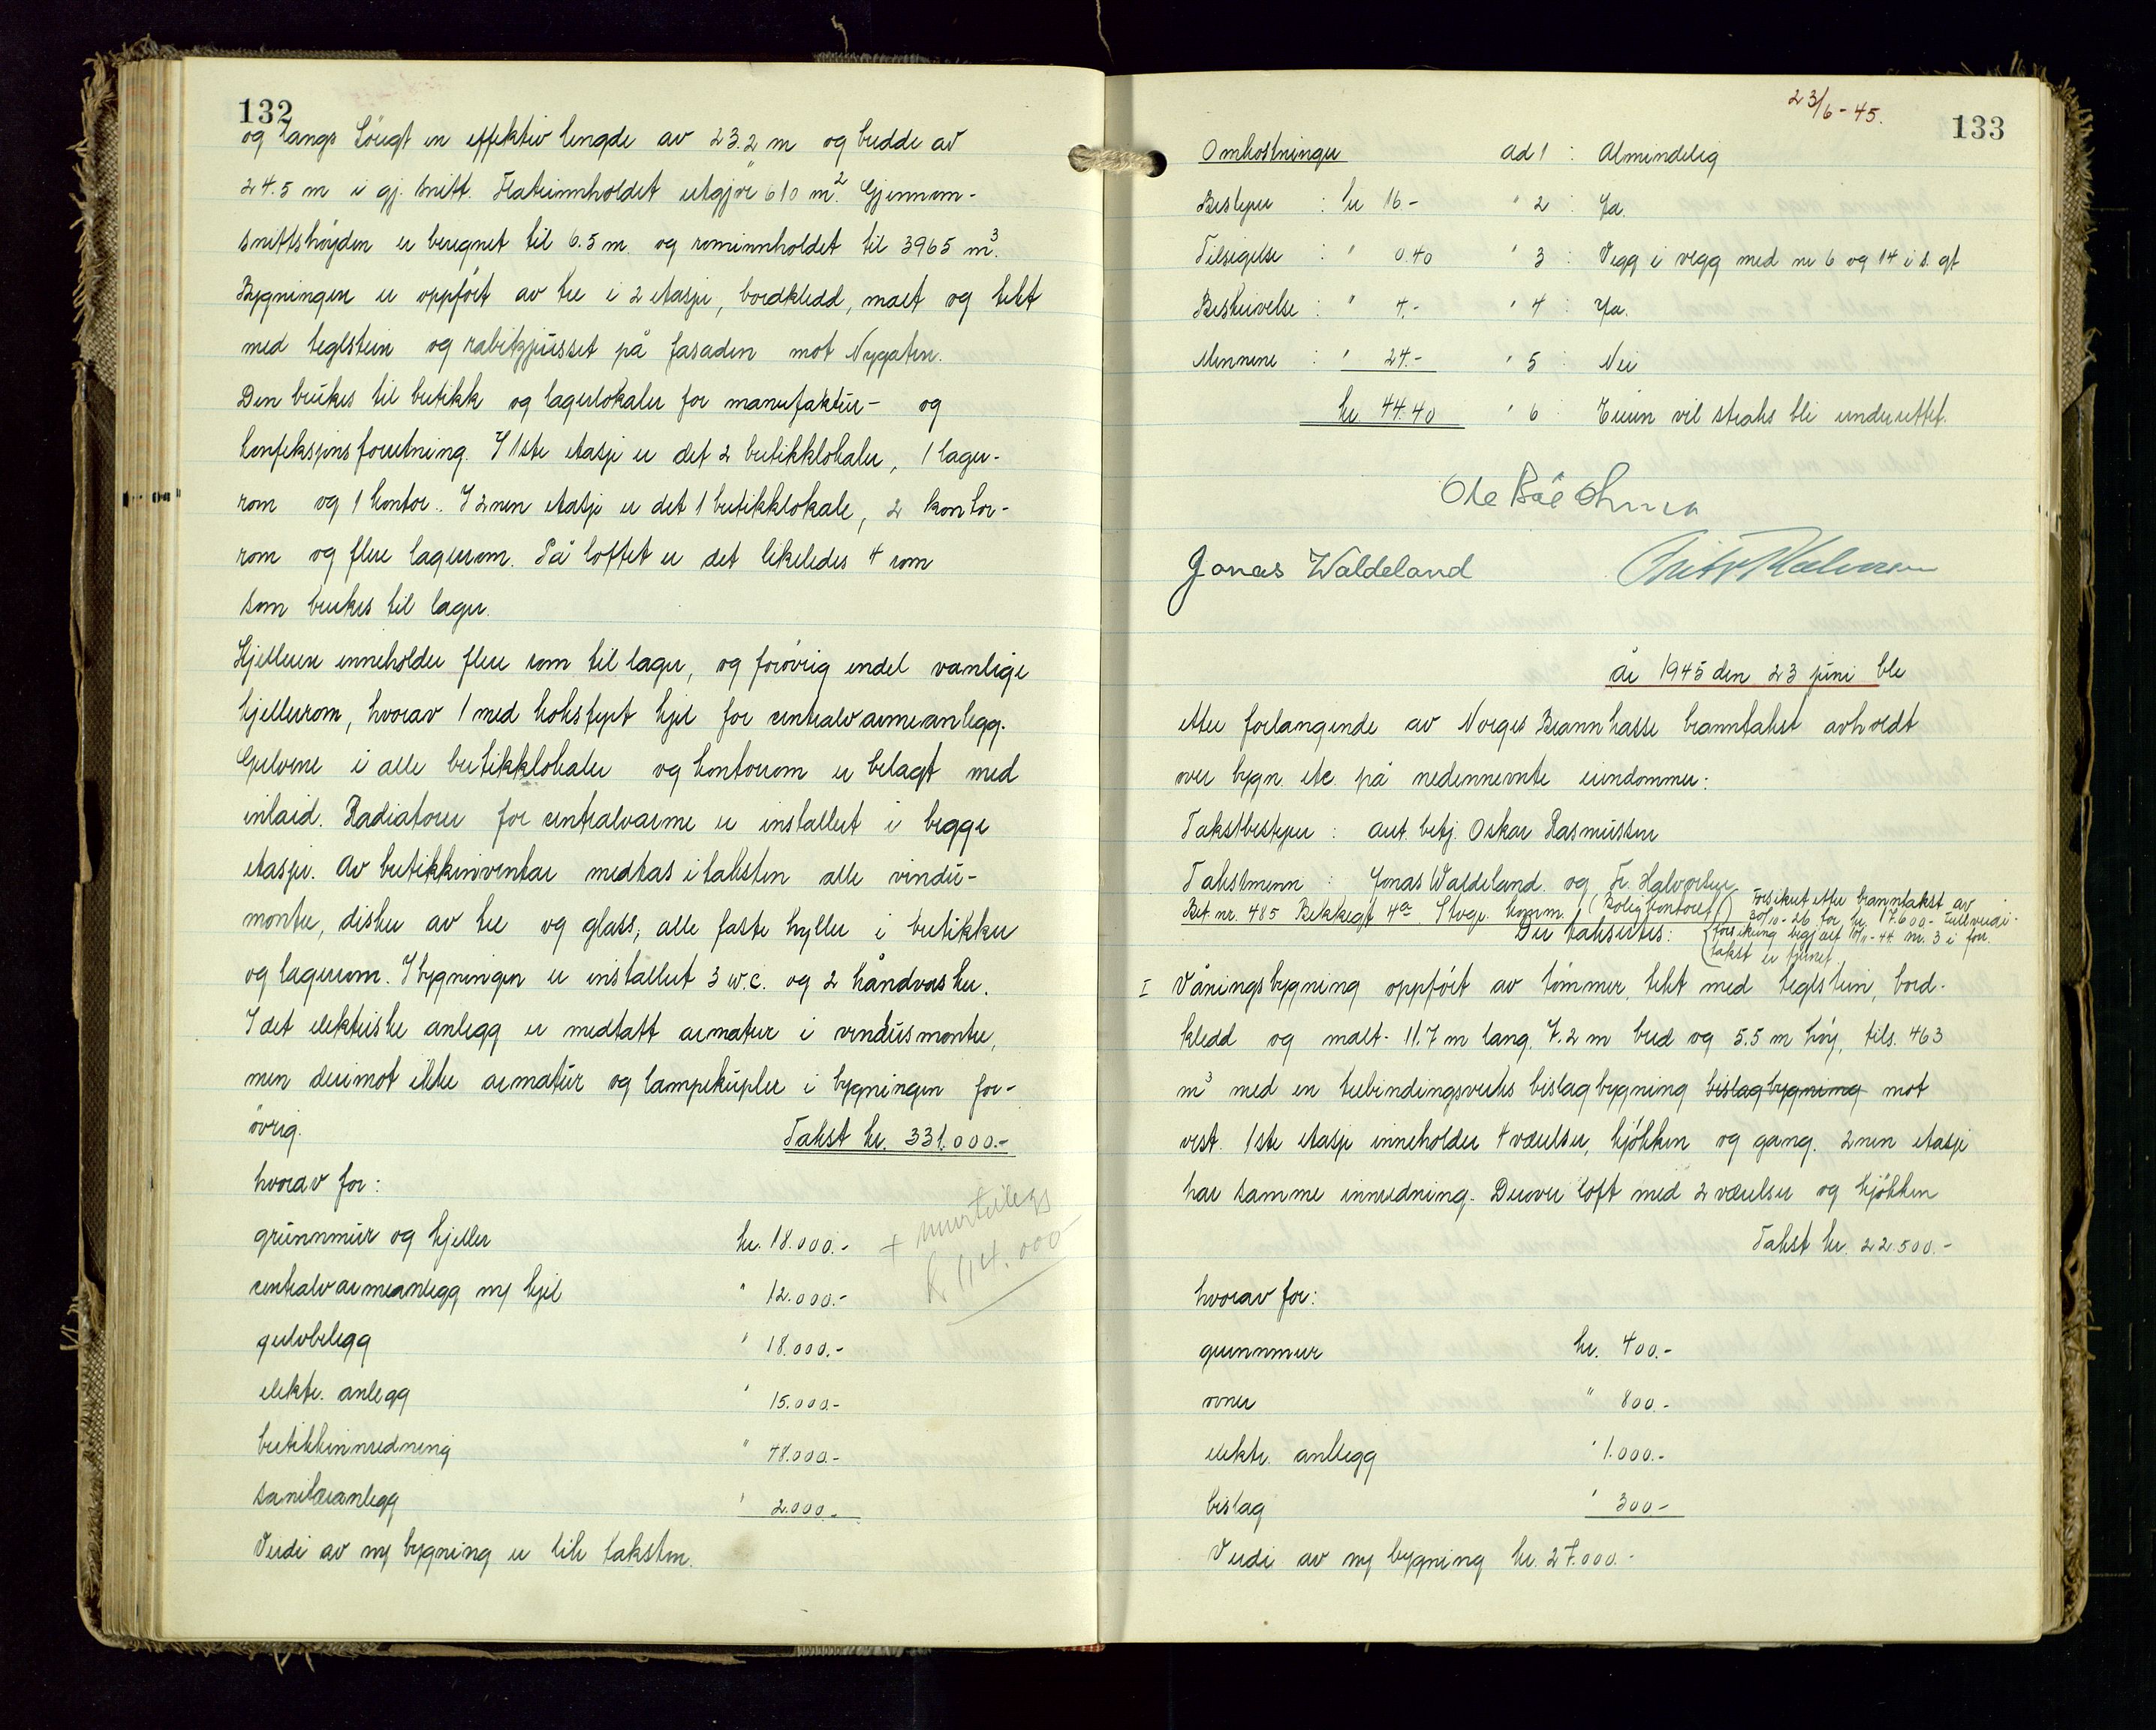 132
og langs Sörgt en effektiv lengde av 23.2 m og bredde av
24.5 m i gj. snitt. Flateinnholdet utgjör 610 m². Gjennom-
snittshöyden er beregnet til 6.5 m. og rominnholdet til 3965 m³.
Bygningen er oppfört av tre i 2 etasjer, bordkledd, malt og tekt
med teglstein og rabitzpusset på fasaden mot Nygaten.
Den brukes til butikk og lagerlokaler for manufaktur- og
konfeksjonsforretning. I 1ste etasje er det 2 butikklokaler, 1 lager-
rom og 1 kontor. I 2nen etasje er det 1 butikklokale, 2 kontor-
rom og flere lagerrom. På loftet er det likeledes 4 rom
som brukes til lager.
Kjelleren inneholder flere rom til lager, og forövrig endel vanlige
kjellerrom, hvorav 1 med koksfyrt kjel for centralvarmeanlegg.
Gulvene i alle butikklokaler og kontorrom er belagt med
inlaid. Radiatorer for centralvarme er installert i begge
etasjer. Av butikkinventar medtas i taksten alle vindu-
montre, disker av tre og glass, alle faste hyller i butikker
og lagerrom. I bygningen er installert 3 w.c. og 2 håndvasker.
I det elektriske anlegg er medtatt armatur i vindusmontre,
men derimot ikke armatur og lampekupler i bygningen for-
övrig.
Takst kr. 331.000.-
hvorav for:
grunnmur og kjeller kr. 18.000.-
+ murtillegg
k 114.000
centralvarmeanlegg m/ kjel " 12.000.-
gulvbelegg " 18.000.-
elektr. anlegg " 15.000.-
butikkinnredning " 48.000.-
sanitæranlegg " 2.000.-
Verdi av ny bygning er lik taksten.
23/6-45.
133
Omkostninger ad 1 : Almindelig
Bestyrer : kr 16- " 2 : Ja.
Tilsigelse : " 0.40 " 3 : Vegg i vegg med nr 6 og 14 i s. gt
Beskrivelse : " 4.- " 4 : Ja.
Mennene : " 24.- " 5 : Nei
kr. 44.40 " 6 : Eieren vil straks bli underrettet.
Ole
Jonas Waldeland
Halvorsen
år 1945 den 23 juni ble
etter forlangende av Norges Brannkasse branntakst avholdt
over bygn. etc. på nedennevnte eiendommer:
Takstbestyrer : aut. betj. Oskar Rasmussen
Takstmenn : Jonas Waldeland og Fr. Halvorsen
Br. nr. 485 Bekkegt 4a Stvgr. komm. (Boligkontoret) Forsikret etter branntakst av
30/10-26 for kr. 17.600- Tilleverdi-
Der takseres: forsikring begj. alf 10/11-44 nr. 3 i forr.
takst er fjernet
I Våningsbygning oppfört av tömmer, tekt med teglstein, bord-
kledd og malt. 11.7 m lang, 7.2 m bred og 5.5 m höy, tils. 463
m³ med en trebindingsverks bislagbygning bislagbygning mot
vest. 1ste etasje inneholder 4 værelser, kjökken og gang. 2nen etasje
har samme innredning. Derover loft med 2 værelser og kjökken
Takst kr. 22.500.-
hvorav for:
grunnmur kr. 400.-
ovner " 800.-
elektr. anlegg " 1.000.-
bislag " 300-
Verdi av ny bygning kr. 27.000.-